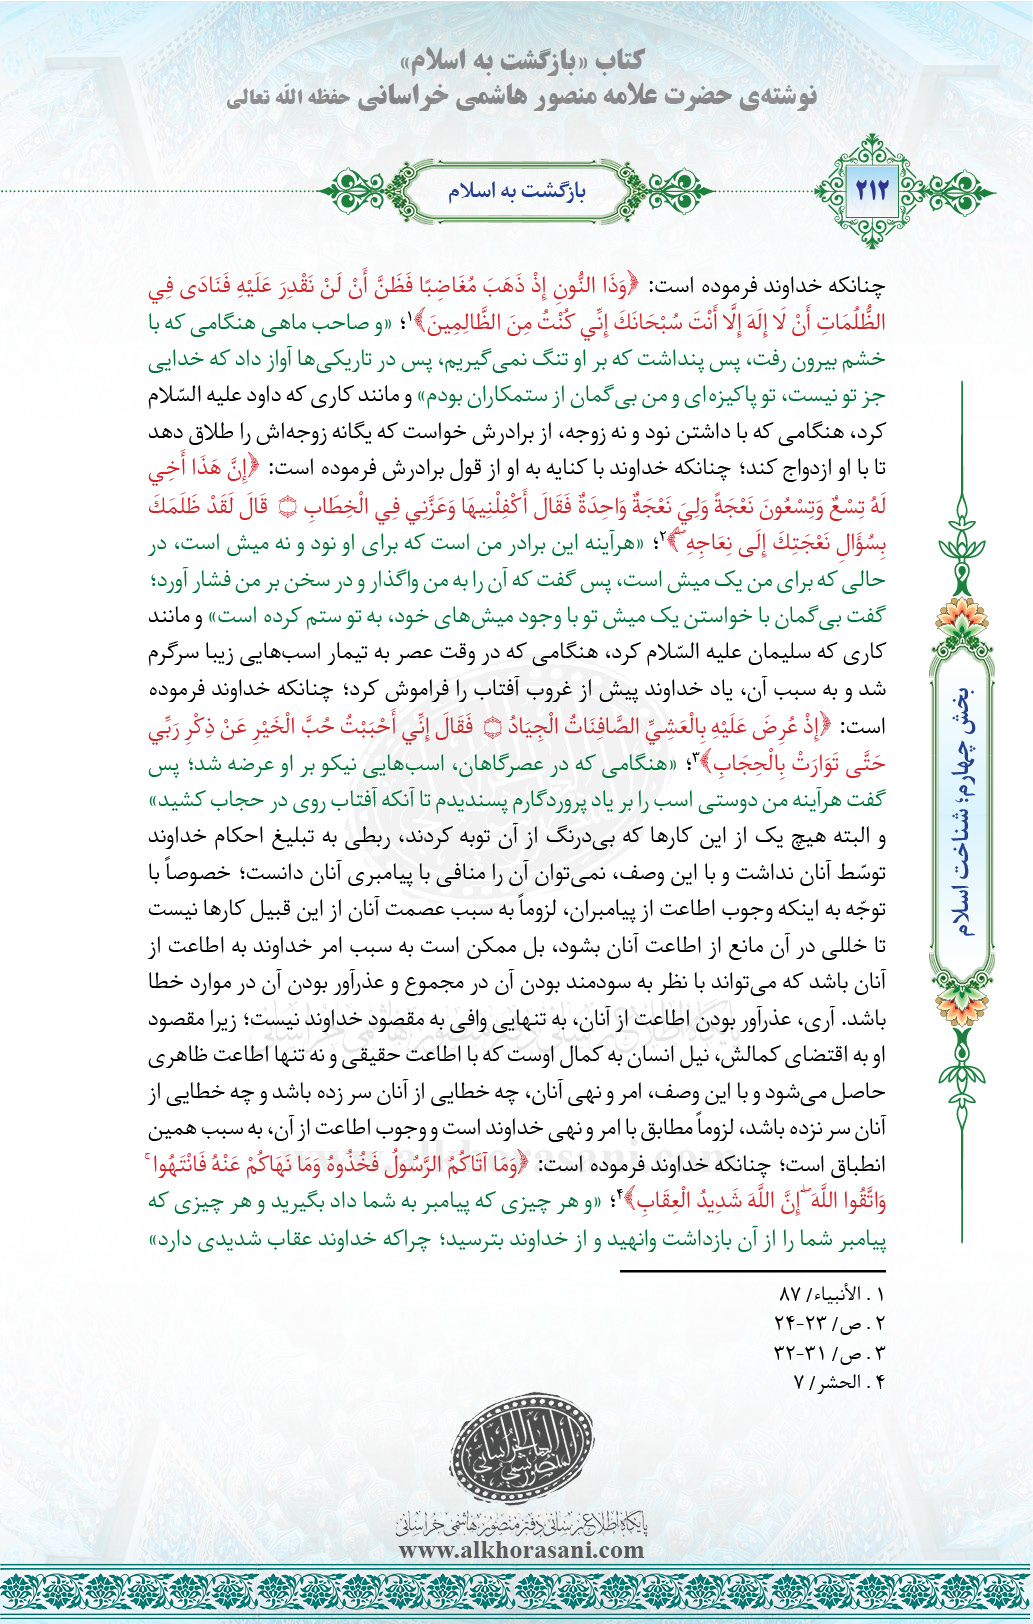 کتاب «بازگشت به اسلام»
نوشته‌ی حضرت علامه منصور هاشمی خراسانی حفظه الله تعالی
۲۱۲
بازگشت به اسلام
چنانکه خداوند فرموده است: ﴿وَذَا النُّونِ إِذْ ذَهَبَ مُغَاضِبًا فَظَنَّ أَنْ لَنْ نَقْدِرَ عَلَيْهِ فَنَادَى فِي
الظُّلُمَاتِ أَنْ لَا إِلَهَ إِلَّا أَنْتَ سُبْحَانَكَ إِنِّي كُنْتُ مِنَ الظَّالِمِينَ﴾۱؛ «و صاحب ماهی هنگامی که با
خشم بیرون رفت، پس پنداشت که بر او تنگ نمی‌گیریم، پس در تاریکی‌ها آواز داد که خدایی
جز تو نیست، تو پاکیزه‌ای و من بی‌گمان از ستمکاران بودم» و مانند کاری که داود علیه السّلام
کرد، هنگامی که با داشتن نود و نه زوجه، از برادرش خواست که یگانه زوجه‌اش را طلاق دهد
تا با او ازدواج کند؛ چنانکه خداوند با کنایه به او از قول برادرش فرموده است: ﴿إِنَّ هَذَا أَخِي
لَهُ تِسْعٌ وَتِسْعُونَ نَعْجَةً وَلِيَ نَعْجَةٌ وَاحِدَةٌ فَقَالَ أَكْفِلْنِيهَا وَعَزَّنِي فِي الْخِطَابِ ۝ قَالَ لَقَدْ ظَلَمَكَ
بِسُؤَالِ نَعْجَتِكَ إِلَى نِعَاجِهِ ۖ﴾۲؛ «هرآینه این برادر من است که برای او نود و نه میش است، در
حالی که برای من یک میش است، پس گفت که آن را به من واگذار و در سخن بر من فشار آورد؛
گفت بی‌گمان با خواستن یک میش تو با وجود میش‌های خود، به تو ستم کرده است» و مانند
کاری که سلیمان علیه السّلام کرد، هنگامی که در وقت عصر به تیمار اسب‌هایی زیبا سرگرم
شد و به سبب آن، یاد خداوند پیش از غروب آفتاب را فراموش کرد؛ چنانکه خداوند فرموده
است: ﴿إِذْ عُرِضَ عَلَيْهِ بِالْعَشِيِّ الصَّافِنَاتُ الْجِيَادُ ۝ فَقَالَ إِنِّي أَحْبَبْتُ حُبَّ الْخَيْرِ عَنْ ذِكْرِ رَبِّي
حَتَّى تَوَارَتْ بِالْحِجَابِ﴾۳؛ «هنگامی که در عصرگاهان، اسب‌هایی نیکو بر او عرضه شد؛ پس
گفت هرآینه من دوستی اسب را بر یاد پروردگارم پسندیدم تا آنکه آفتاب روی در حجاب کشید»
و البته هیچ یک از این کارها که بی‌درنگ از آن توبه کردند، ربطی به تبلیغ احکام خداوند
توسّط آنان نداشت و با این وصف، نمی‌توان آن را منافی با پیامبری آنان دانست؛ خصوصاً با
توجّه به اینکه وجوب اطاعت از پیامبران، لزوماً به سبب عصمت آنان از این قبیل کارها نیست
تا خللی در آن مانع از اطاعت آنان بشود، بل ممکن است به سبب امر خداوند به اطاعت از
آنان باشد که می‌تواند با نظر به سودمند بودن آن در مجموع و عذرآور بودن آن در موارد خطا
باشد. آری، عذرآور بودن اطاعت از آنان، به تنهایی وافی به مقصود خداوند نیست؛ زیرا مقصود
او به اقتضای کمالش، نیل انسان به کمال اوست که با اطاعت حقیقی و نه تنها اطاعت ظاهری
حاصل می‌شود و با این وصف، امر و نهی آنان، چه خطایی از آنان سر زده باشد و چه خطایی از
آنان سر نزده باشد، لزوماً مطابق با امر و نهی خداوند است و وجوب اطاعت از آن، به سبب همین
انطباق است؛ چنانکه خداوند فرموده است: ﴿وَمَا آتَاكُمُ الرَّسُولُ فَخُذُوهُ وَمَا نَهَاكُمْ عَنْهُ فَانْتَهُوا ۚ
وَاتَّقُوا اللَّهَ ۖ إِنَّ اللَّهَ شَدِيدُ الْعِقَابِ﴾۴؛ «و هر چیزی که پیامبر به شما داد بگیرید و هر چیزی که
پیامبر شما را از آن بازداشت وانهید و از خداوند بترسید؛ چراکه خداوند عقاب شدیدی دارد»
۱ . الأنبیاء/ ۸۷
۲ . ص/ ۲۳-۲۴
۳ . ص/ ۳۱-۳۲
۴ . الحشر/ ۷
بخش چهارم؛ شناخت اسلام
المنصور الهاشمي الخراساني
پایگاه اطلاع‌رسانی دفتر منصور هاشمی خراسانی
www.alkhorasani.com